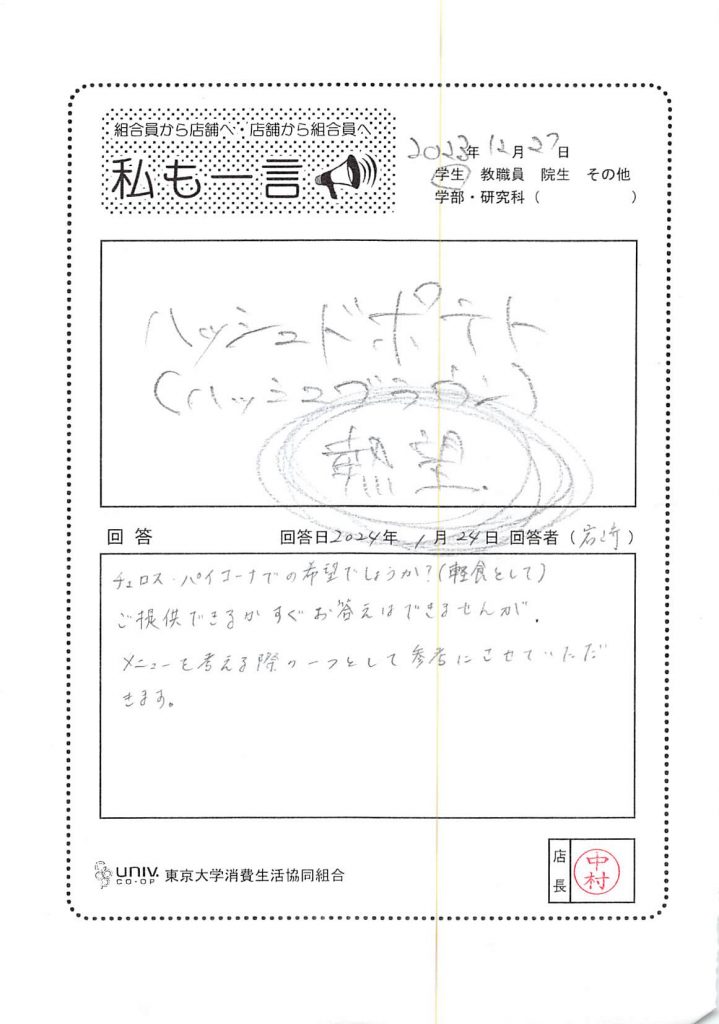 組合員から店舗へ・店舗から組合員へ
私も一言
2023年12月27日
学生 教職員 院生 その他
学部・研究科（ ）
ハッシュドポテト
(ハッシュブラウン)
熱望.
回答 回答日2024年1月24日 回答者（岩崎）
チュロス・パイコーナでの希望でしょうか?(軽食として)
ご提供できるかすぐお答えはできませんが、
メニューを考える際の一つとして参考にさせていただ
きます。
UNIV. CO-OP 東京大学消費生活協同組合
店長 中村